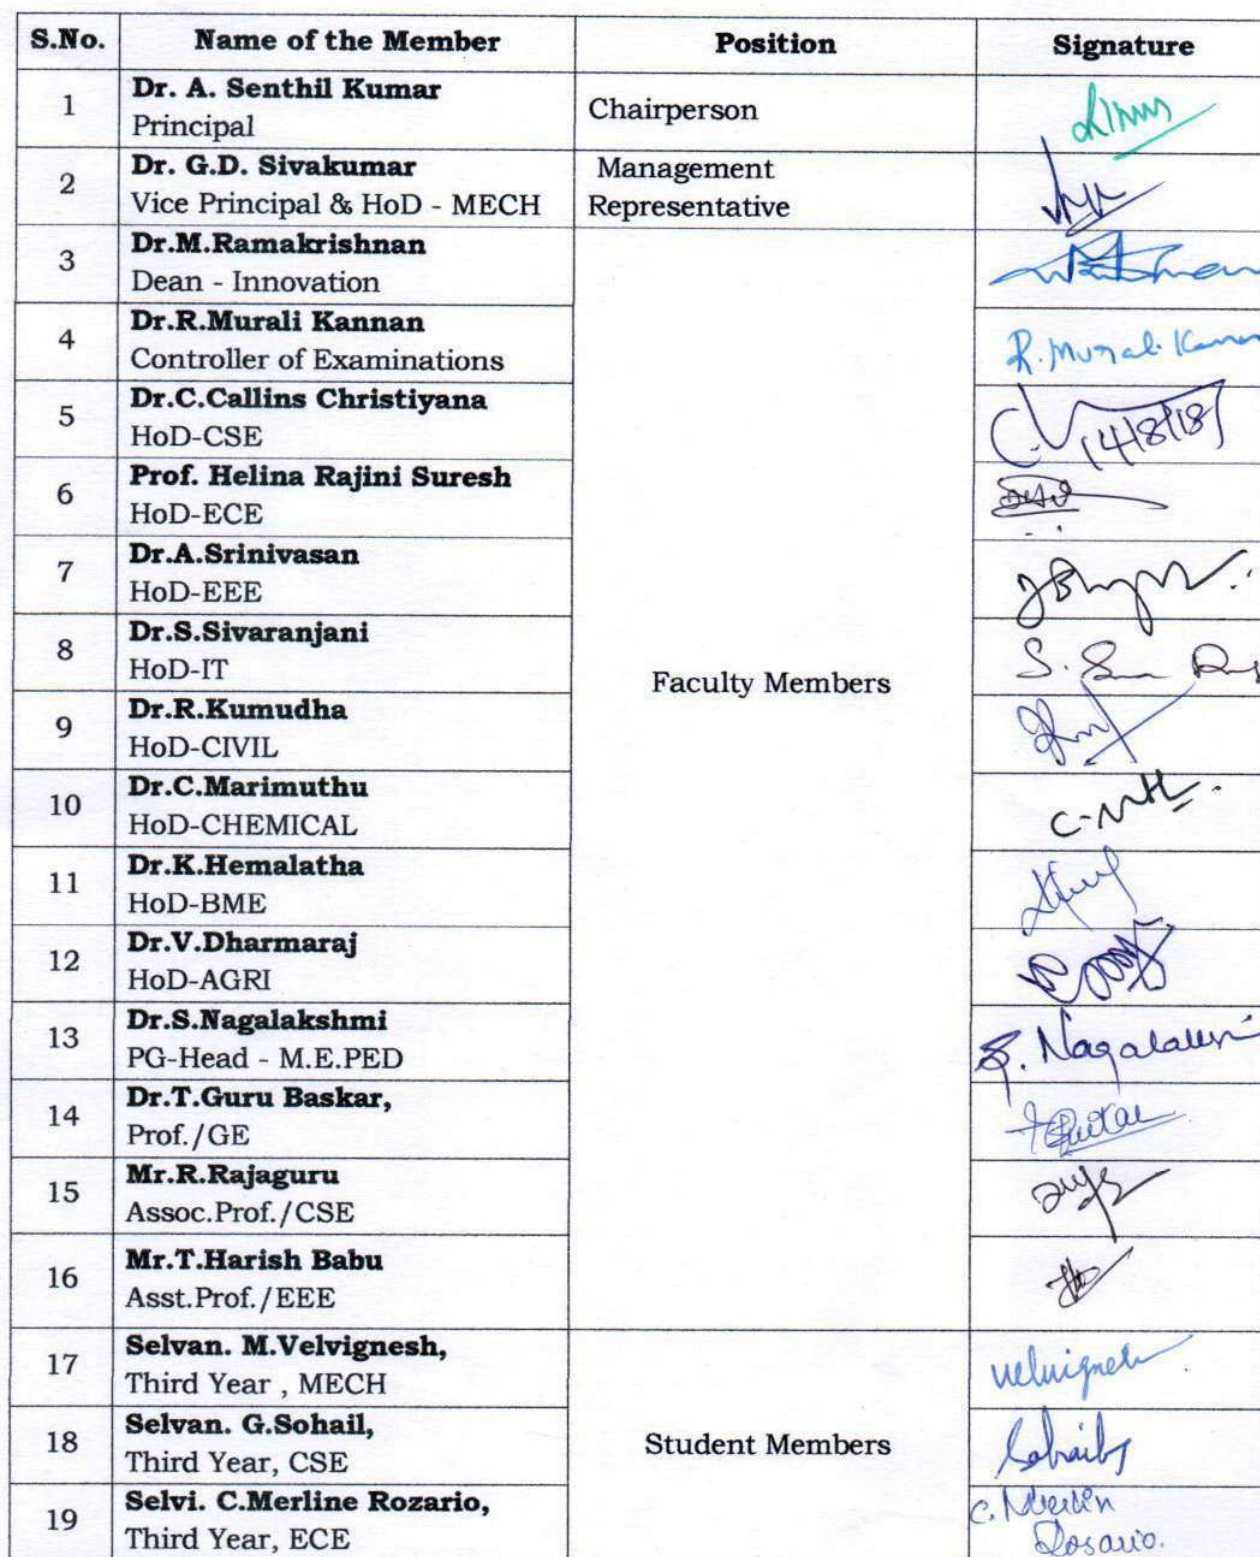 S.No. Name of the Member Position Signature
1 Dr. A. Senthil Kumar
Principal
Chairperson
2 Dr. G.D. Sivakumar
Vice Principal & HoD - MECH
Management
Representative
3 Dr.M.Ramakrishnan
Dean - Innovation
4 Dr.R.Murali Kannan
Controller of Examinations
R. Murali Kannan
5 Dr.C.Callins Christiyana
HoD-CSE
14/8/18
6 Prof. Helina Rajini Suresh
HoD-ECE
7 Dr.A.Srinivasan
HoD-EEE
8 Dr.S.Sivaranjani
HoD-IT
Faculty Members
9 Dr.R.Kumudha
HoD-CIVIL
10 Dr.C.Marimuthu
HoD-CHEMICAL
11 Dr.K.Hemalatha
HoD-BME
12 Dr.V.Dharmaraj
HoD-AGRI
13 Dr.S.Nagalakshmi
PG-Head - M.E.PED
14 Dr.T.Guru Baskar,
Prof./GE
15 Mr.R.Rajaguru
Assoc.Prof./CSE
16 Mr.T.Harish Babu
Asst.Prof./EEE
17 Selvan. M.Velvignesh,
Third Year , MECH
18 Selvan. G.Sohail,
Third Year, CSE
Student Members
19 Selvi. C.Merline Rozario,
Third Year, ECE
Rosario.